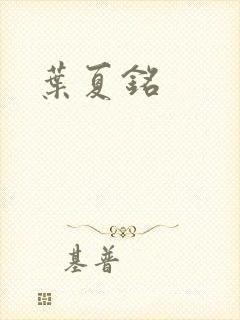 葉夏銘
基普